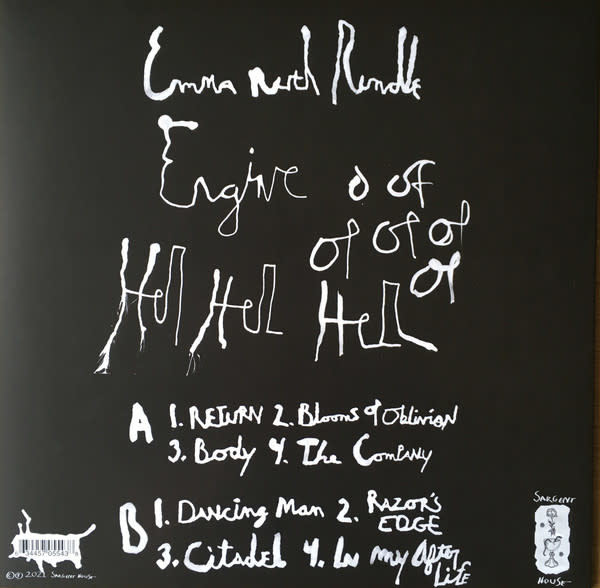 Emma Ruth Rundle
Engine o of
of of of
of
Hel Hel Hell
A 1. RETURN 2. Blooms of Oblivion
3. Body 4. The Company
B 1. Dancing Man 2. RAZOR'S
EDGE
3. Citadel 4. In my After
Life
SARGENT
HOUSE
34457 05543 8
©℗ 2021 SARGENT HOUSE